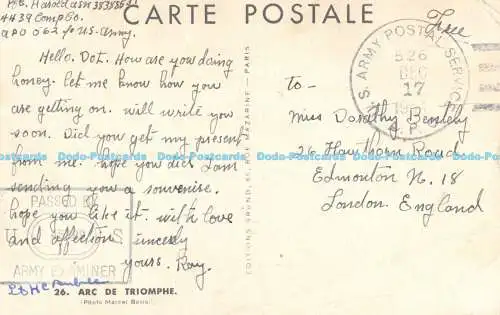 CARTE POSTALE
4439 Comp Co.
APO 562 % US. Army.
Hello. Dot. How are you doing
honey. let me know how you
are getting on. will write you
soon. Did you get my present
from me. hope you did. I am
sending you a souvenise.
hope you like it. with love
and affection sincerly
yours. Ray.
PASSED BY
U S
ARMY EXAMINER
26. ARC DE TRIOMPHE.
(Photo Marcel Bovis)
EDITIONS GRUND, 60, RUE MAZARINE - PARIS
Free
U.S. ARMY POSTAL SERVICE
526
DEC
17
A.P.
To -
Miss Dorothy Bentley
26 Hawthorn Road
Edmonton N. 18
London. England
Dodo-Postcards.com Dodo-Postcards.com Dodo-Postcards.com